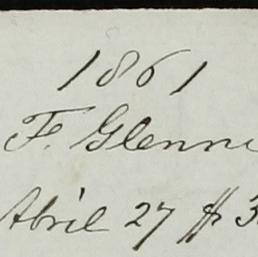 1861
F. Glenni
April 27 $ 3